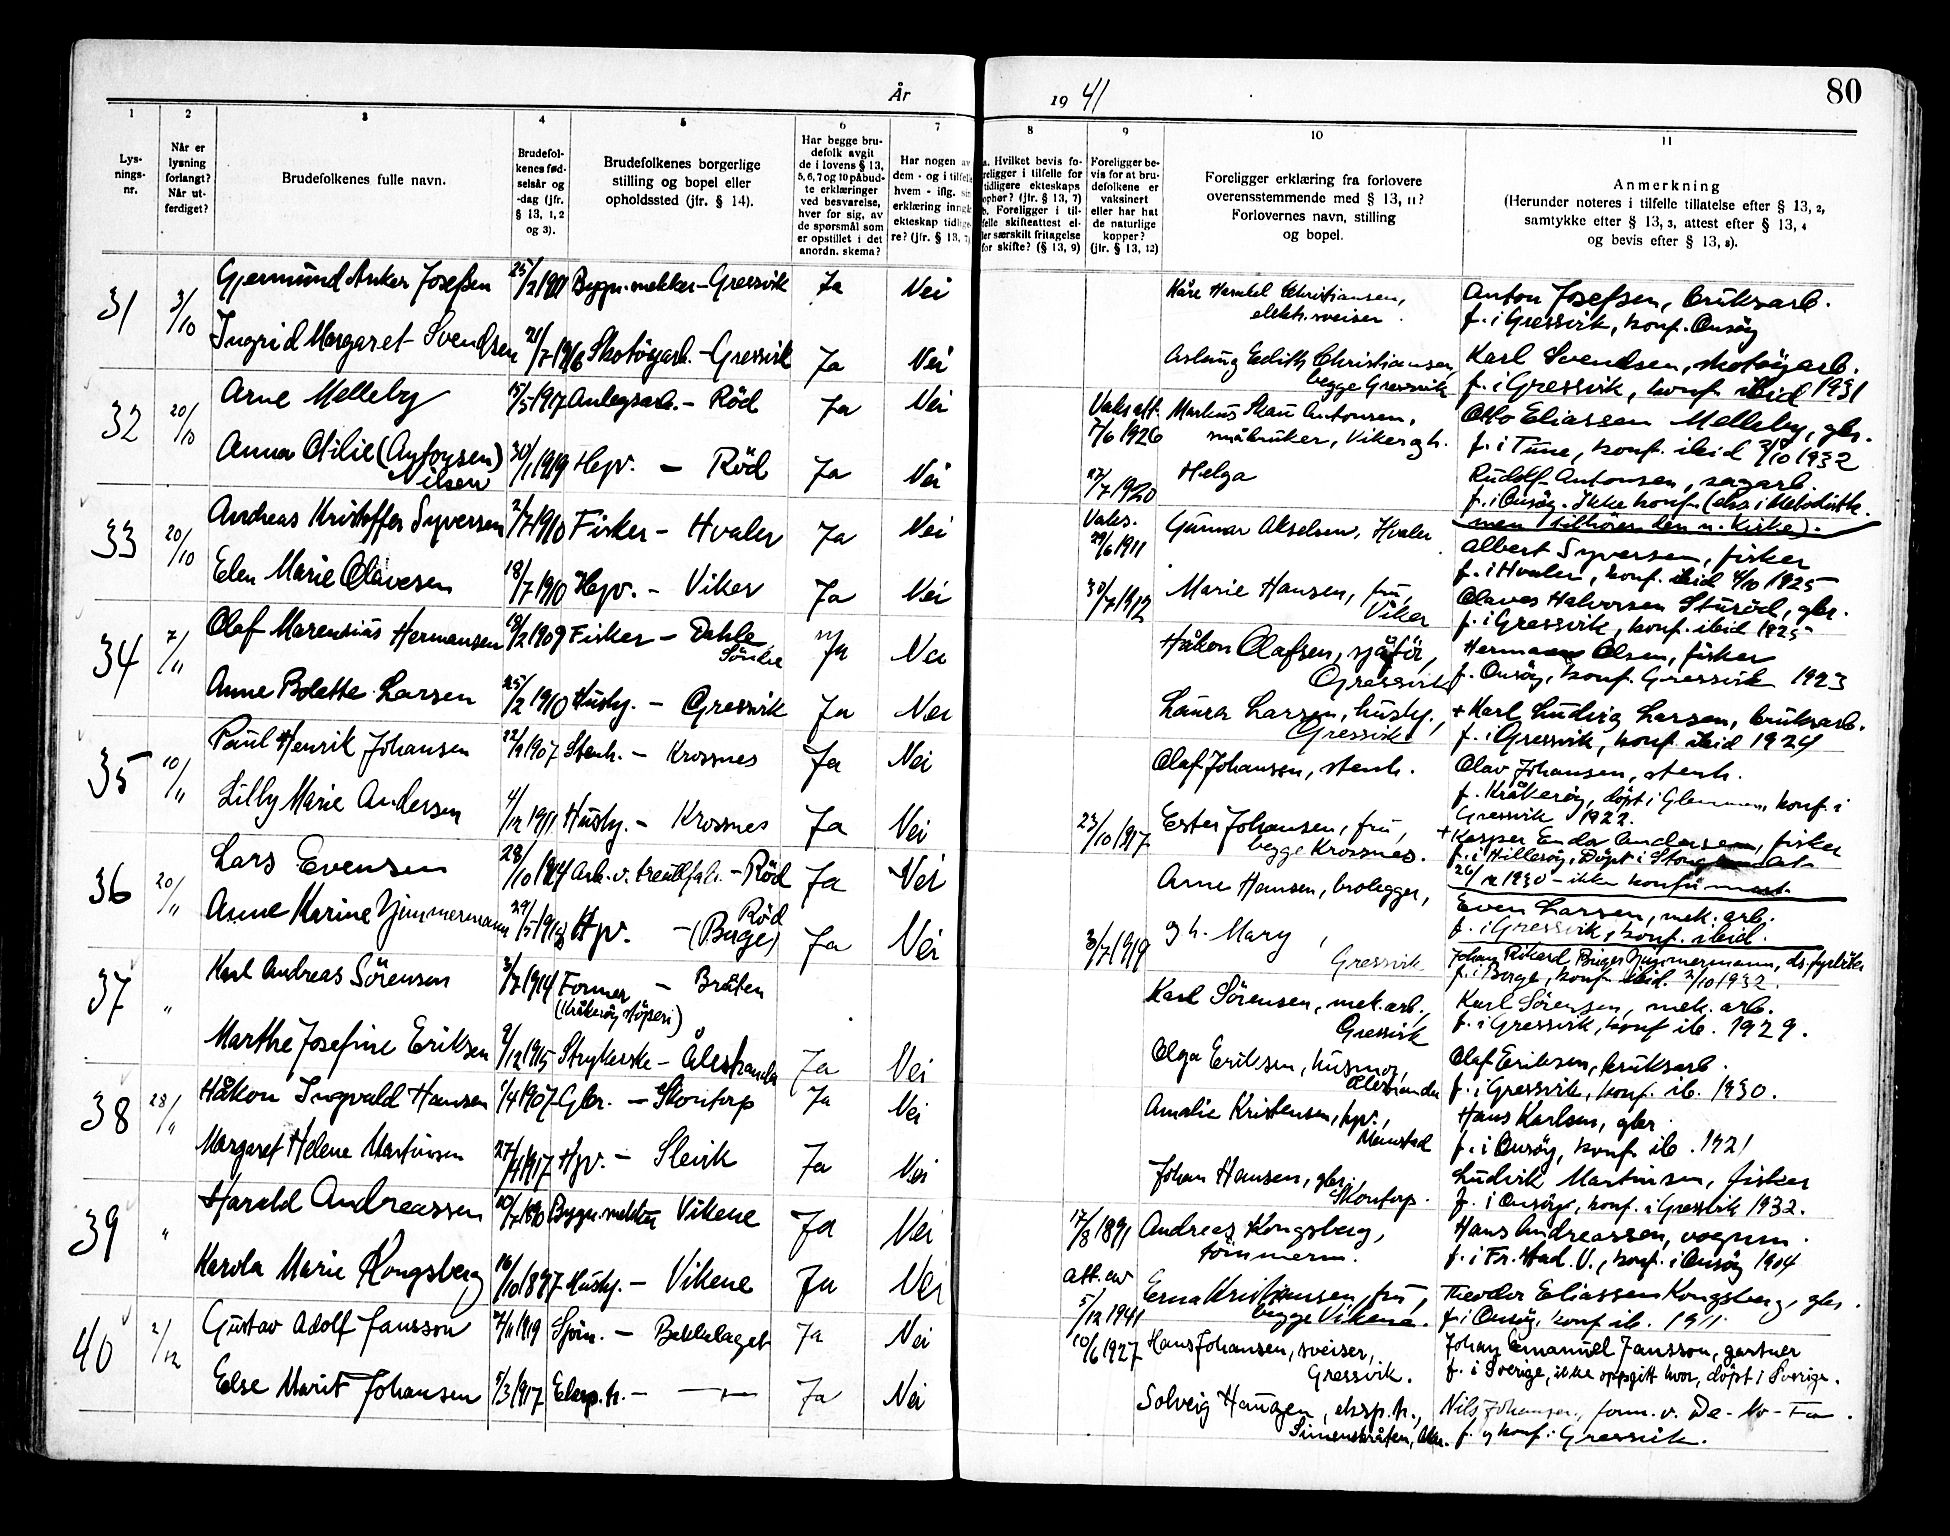 År 1941
80
1
Lys-
nings-
nr.
2
Når er
lysning
forlangt?
Når ut-
ferdiget?
3
Brudefolkenes fulle navn.
4
Brudefol-
kenes fød-
selsår og
-dag (jfr.
§ 13, 1, 2
og 3).
5
Brudefolkenes borgerlige
stilling og bopel eller
opholdssted (jfr. § 14).
6
Har begge bru-
defolk avgit
de i lovens § 13,
5, 6, 7 og 10 påbud-
te erklæringer
ved besvarelse,
hver for sig, av
de spørsmål som
er opstillet i det
anordn. skema?
7
Har nogen av
dem - og i tilfelle
hvem - iflg. sin
erklæring inngå
ekteskap tidlige-
re? (jfr. § 13, 7)
8
a. Hvilket bevis fo-
religger i tilfelle for
tidligere ekteskaps
ophør? (jfr. § 13, 7)
b. Foreligger i til-
felle skifteattest el-
ler særskilt fritagelse
for skifte? (§ 13, 9)
9
Foreligger be-
vis for at bru-
defolkene er
vaksinert
eller har hat
de naturlige
kopper?
(jfr. § 13, 12)
10
Foreligger erklæring fra forlovere
overensstemmende med § 13, 11?
Forlovernes navn, stilling
og bopel.
11
Anmerkning
(Herunder noteres i tilfelle tillatelse efter § 13, 2,
samtykke efter § 13, 3, attest efter § 13, 4
og bevis efter § 13, 8).
31 3/10 Gjermund Anker Josefsen 25/2 Bygn.mekker - Gressvik Ja Nei
Christiansen, Anton Josefsen, bruksarb.
elektr.sveiser. f. i Gressvik, konf. Onsøy
Ingrid Margaret Svendsen 21/7 1916 Skotøyarb. - Gressvik Ja Nei
Aslaug Edith Christiansen, Karl Svendsen, skotøyarb.
begge Gressvik f. i Gressvik, konf. ibid 1931
32 20/10 Arne Melleby 15/5 1917 Anlegsarb. - Rød Ja Nei
Vaks.att. 7/6 1926 Markus Skau Antonsen, Otto Eliassen Melleby, gbr.
småbruker, Viker gh. f. i Tune, konf. ibid 2/10 1932
Anna Otilie (Antonsen) Nilsen 30/1 1919 Hpv. - Rød Ja Nei
17/7 1920 Helga Rudolf Antonsen, sagarb.
f. i Onsøy. Ikke konf.
men tilhører den n. kirke).
33 20/10 Andreas Kristoffer Syversen 2/7 1910 Fisker - Hvaler Ja Nei
Vaks. 29/6 1911 Gunnar Akselsen, Hvaler Albert Syversen, fisker
f. i Hvaler, konf. ibid 4/10 1925
Elen Marie Olavesen 18/7 1910 Hpv. - Viker Ja Nei
30/7 1912 Marie Hansen, fru, Viker Olaves Halvorsen Stusød, gbr.
f. i Gressvik, konf. ibid 1925
34 7/11 Olaf Marensius Hermansen 18/2 1909 Fisker - Dahle Søndre Ja Nei
Håkon Olafsen, sjåfør, Gressvik Hermann Olsen, fisker
f. Onsøy, konf. Gressvik 1923
Anne Bolette Larsen 25/2 1910 Husby. - Gressvik Ja Nei
Laura Larsen, husby., Gressvik + Karl Ludvig Larsen, bruksarb.
f. i Gressvik, konf. ibid 1924
35 10/11 Paul Henrik Johansen 1907 Stenh. - Krossnes Ja Nei
Olaf Johansen, stenh. Olav Johansen, stenh.
f. Kråkerøy, døpt i Glemmen, konf. i
Gressvik 1922.
Lilly Marie Andersen 4/12 1911 Husby. - Krossnes Ja Nei
23/10 1917 Ester Johansen, fru, begge Krossnes. + Kasper Endor Andersen, fisker
f. i Hillesøy, Døpt i
26/12 1930 - ikke konfirmert.
36 20/11 Lars Evensen 28/10 1914 Arb. v. treullfab. - Rød Ja Nei
Arne Hansen, brolegger, Even Larsen, mek. arb.
f. i Gressvik, konf. ibid.
Anne Karine Zimmermann 29/5 Hpv. - Rød (Borge) Ja Nei
3/7 1919 gh. Mary, Gressvik Johan Rikard Birger Zimmermann,
f. i Borge, konf. ibid. 2/10 1932.
37 " Karl Andreas Sørensen 3/7 1914 Former - Bråten
(Kråkerøy støperi)
Karl Sørensen, mek. arb., Gressvik Karl Sørensen, mek. arb.
f. i Gressvik, konf. ib. 1929.
Marthe Josefine Eriksen 9/12 1915 Strykerske - Ålestranda Ja Nei
Olga Eriksen, husmor, Ålestranda Olaf Eriksen, bruksarb.
f. i Gressvik, konf. ib. 1930.
38 28/11 Håkon Ingvald Hansen 1/4 1907 Gbr. - Skontorp Ja Nei
Amalie Kristensen, hpv., Hans Karlsen, gbr.
f. i Onsøy, konf. ib. 1921
Margaret Helene Martinsen 27/4 1917 Hpv. - Slevik Ja Nei
Johan Hansen, gbr., Skontorp. Ludvik Martinsen, fisker
f. i Onsøy, konf. i Gressvik 1932.
39 " Harald Andreassen 10/7 1890 Bygn.mekker Vikene Ja Nei
17/8 1891 Andreas Kongsberg, tømmerm. Hans Andreassen, vognm.
f. i Fr.stad. V., konf. i Onsøy 1904
Karola Marie Kongsberg 16/10 1897 Husby. - Vikene Ja Nei
att. av 5/12 1941 Erna Kristiansen, fru, begge Vikene. Theodor Eliassen Kongsberg, gbr.
f. i Onsøy, konf. ib. 1911
40 2/12 Gustav Adolf Jansson 1919 Sjøm. - Bekkelaget Ja Nei
10/6 1927 Hans Johansen, sveiser, Gressvik. Johan Emanuel Jansson, gartner
f. i Sverige, ikke oppgitt hvor, døpt i Sverige.
Else Marit Johansen 5/3 1917 Eksp.tr. - — " — Ja Nei
Solveig Haugen, eksp.tr., Simensbråten, Aker. Nils Johansen, form. v. De-No-Fa.
f. og konf. i Gressvik.